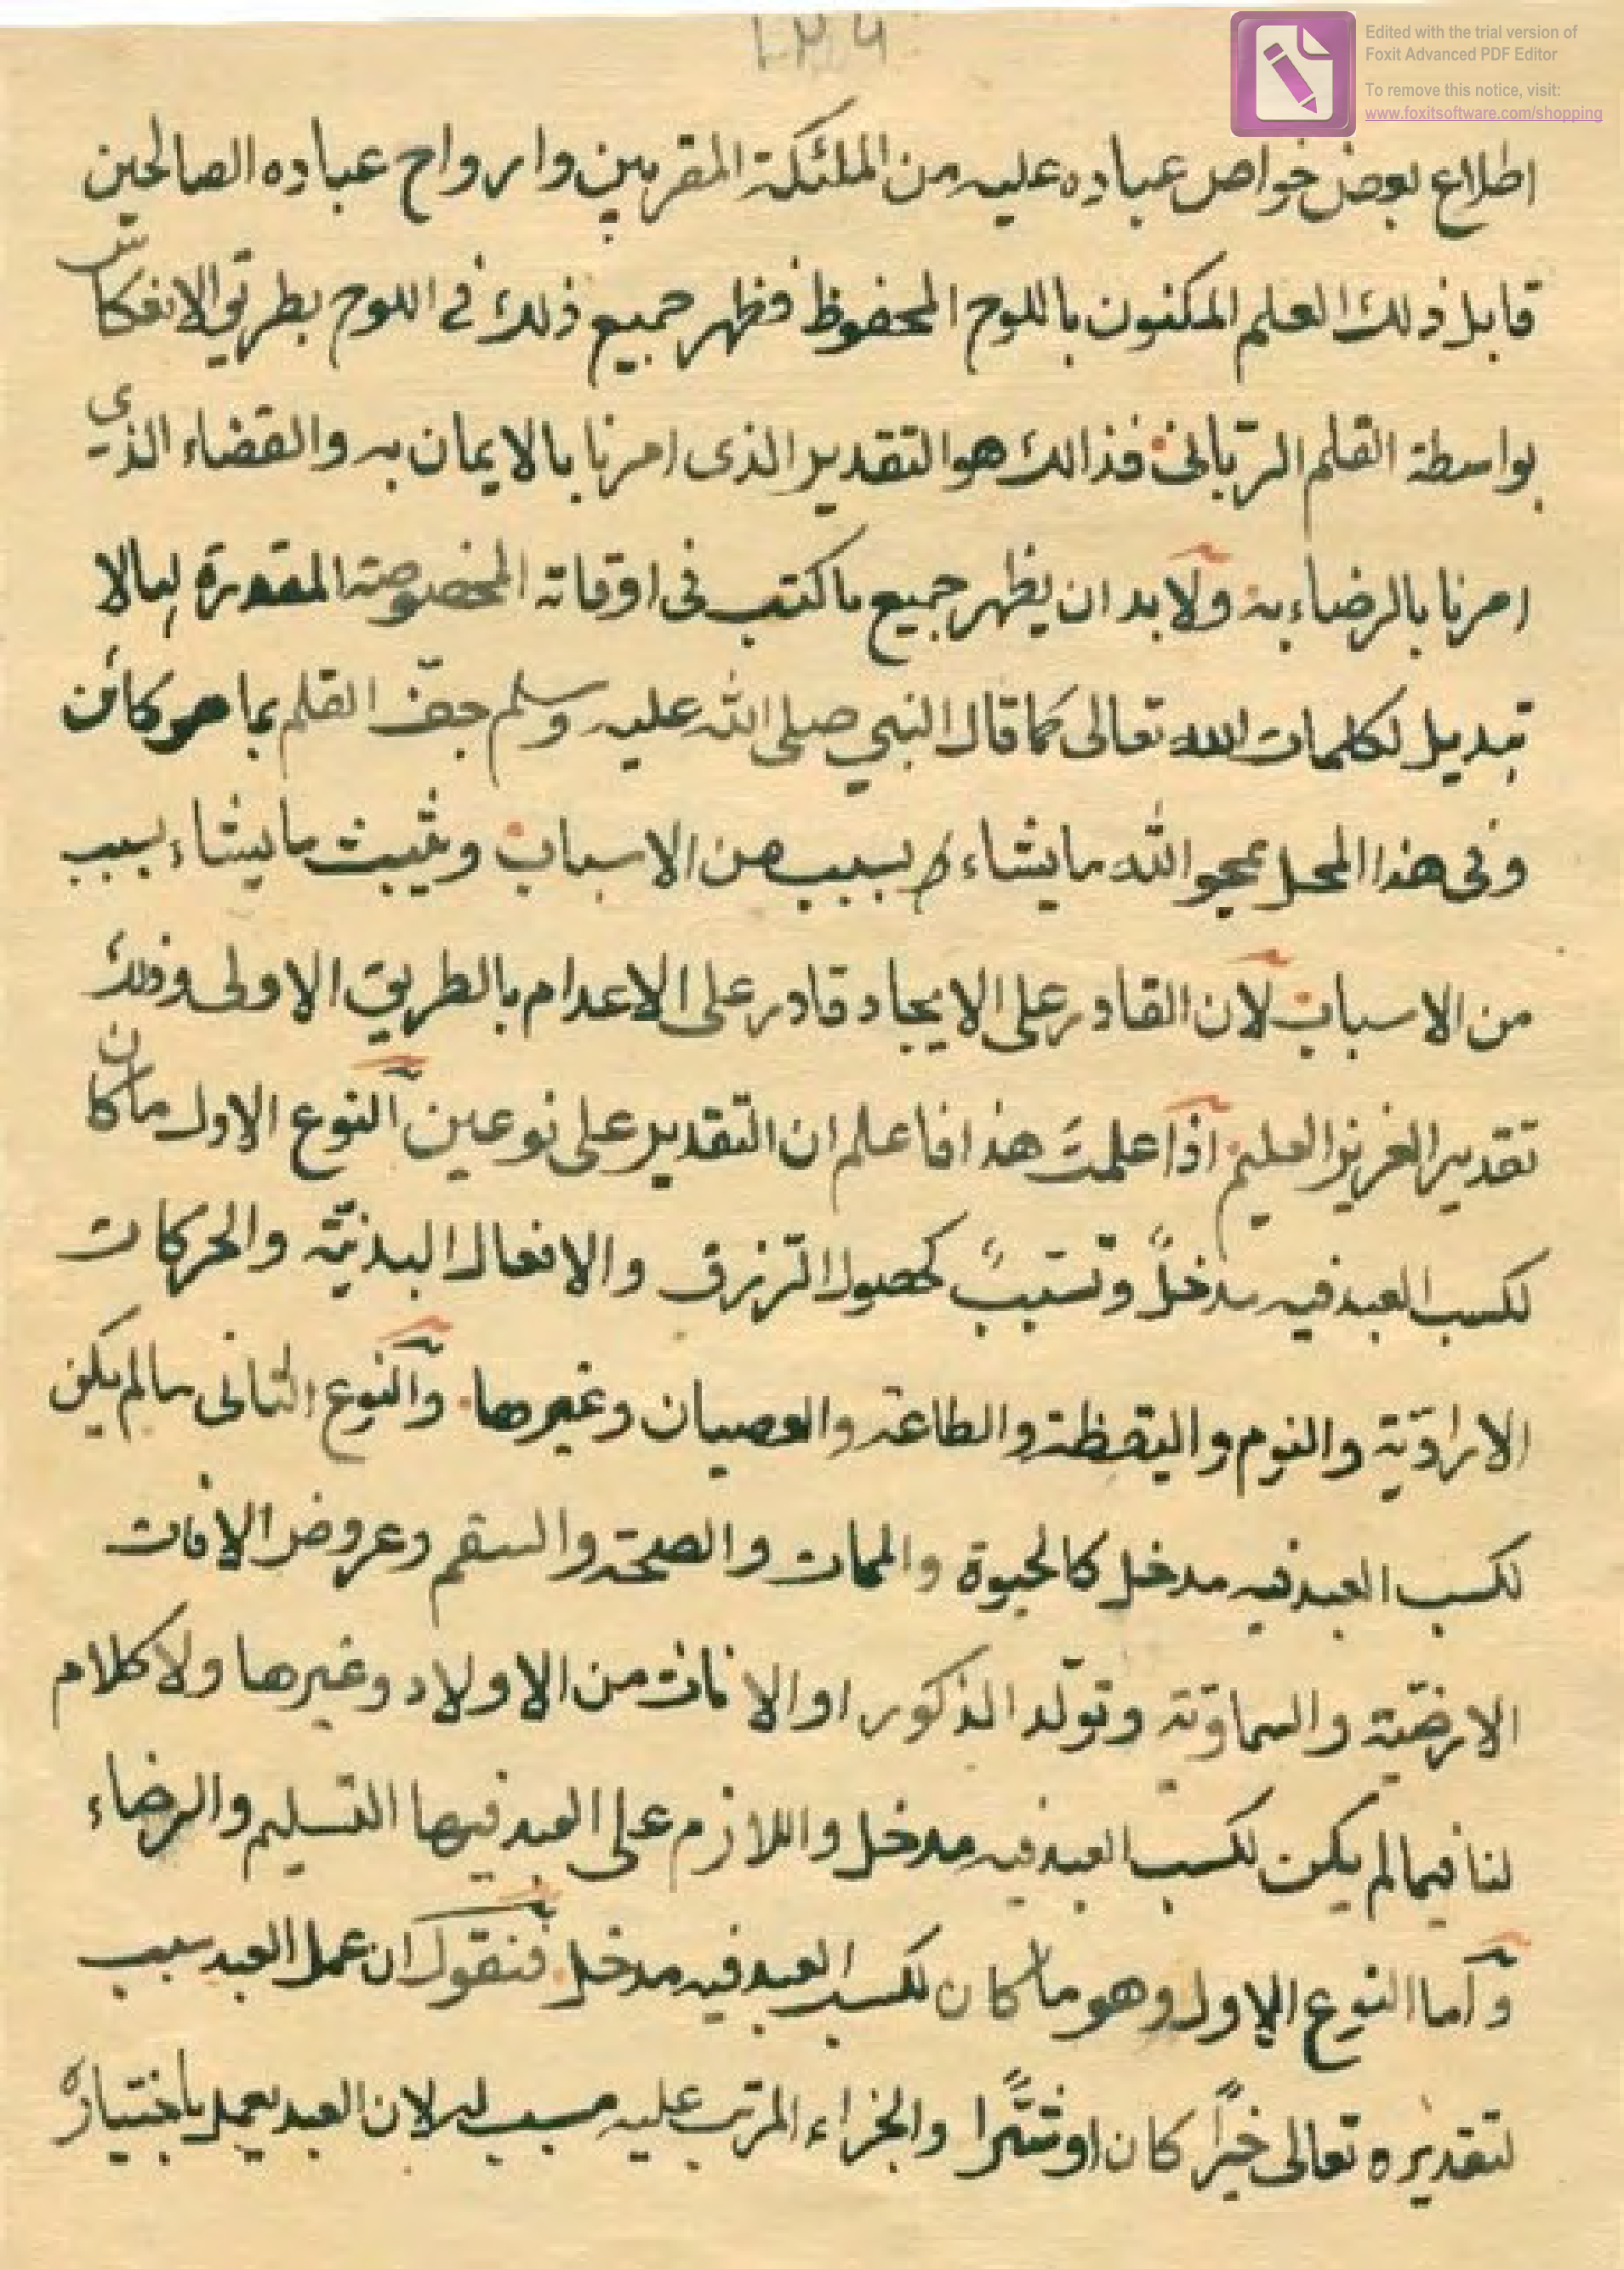 ١٣٩
Edited with the trial version of
Foxit Advanced PDF Editor
To remove this notice, visit:
www.foxitsoftware.com/shopping
اطلاع بعض خواص عباده عليه من الملئكة المقربين وارواح عباده الصالحين
قابل ذلك العلم المكنون باللوح المحفوظ فظهر جميع ذلك في اللوح بطريق الانعكاس
بواسطة القلم الربّانى فذالك هو التقدير الذى امرنا بالايمان به والقضاء الذي
امرنا بالرضاء به ولا بد ان يظهر جميع ما كتب فى اوقاته المخصوصة المقدرة لها لا
تبديل لكلمات الله تعالى كما قال النبي صلى الله عليه وسلم جفّ القلم بما هو كائن
وفى هذا المحل يمحو الله ما يشاء بسبب من الاسباب ويثبت ما يشاء بسبب
من الاسباب لان القادر على الايجاد قادر على الاعدام بالطريق الاولى وذلك
تقدير العزيز العليم اذا علمت هذا فاعلم ان التقدير على نوعين النوع الاول ما كان
لكسب العبد فيه مدخلً وتسبّبً كحصول الرّزق والافعال البدنيّة والحركات
الاراديّة والنوم واليقظة والطاعة والعصيان وغيرها والنوع الثانى مالم يكن
لكسب العبد فيه مدخل كالحيوة والممات والصحة والسقم وعروض الافات
الارضيّة والسماويّة وتولّد الذكور او الاناث من الاولاد وغيرها ولا كلام
لنا فيما لم يكن لكسب العبد فيه مدخل واللازم على العبد فيها التسليم والرضاء
واما النوع الاول وهو ما كان لكسب العبد فيه مدخل فنقول ان عمل العبد سبب
لتقديره تعالى خيرًا كان او شرًّا والجزاء المرتب عليه مسبب له لان العبد يعمل باختياره